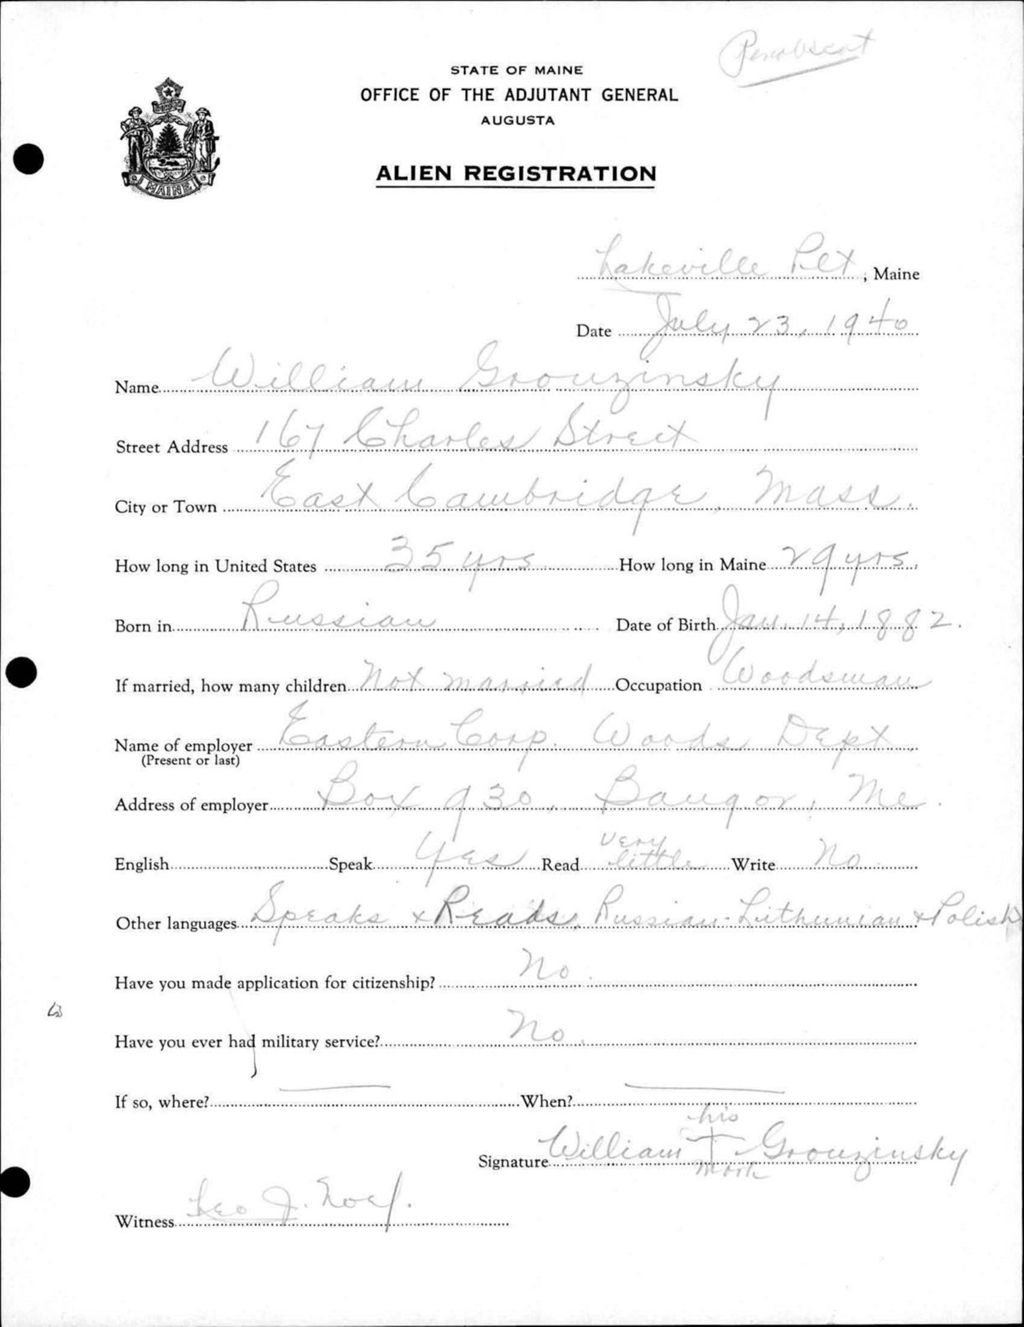 Penobscot
STATE OF MAINE
OFFICE OF THE ADJUTANT GENERAL
AUGUSTA
MAINE
ALIEN REGISTRATION
Lakeville Plt, Maine
Date July 23, 1940
Name William Grouzinsky
Street Address 167 Charles Street
City or Town East Cambridge, Mass.
How long in United States 35 yrs How long in Maine 29 yrs.
Born in Russian Date of Birth Jan. 14, 1882.
If married, how many children Not married Occupation Woodsman
Name of employer Eastern Corp. Woods Dept
(Present or last)
Address of employer Box 930, Bangor, Me.
English Speak Yes Read very little Write No
Other languages Speaks + Reads, Russian-Lithunian + Polish
Have you made application for citizenship? No.
Have you ever had military service? No.
If so, where? When?
his
Signature William + Grouzinsky
mark
Witness Leo J.